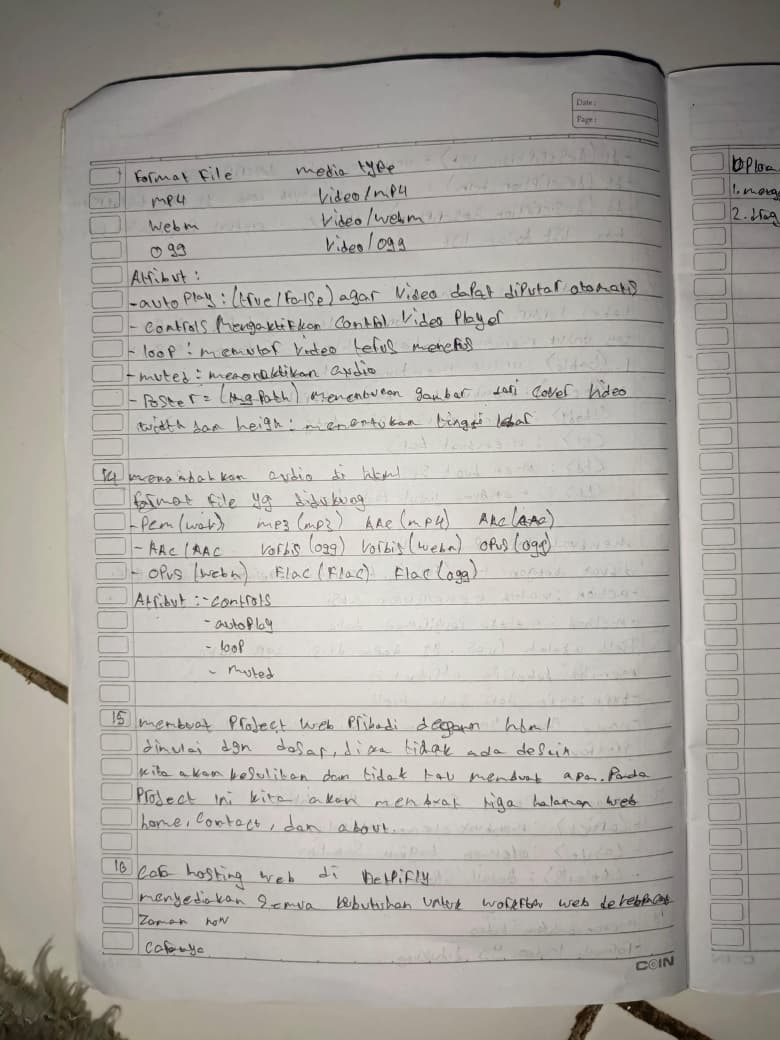 Date :
Page :
Format File media type
mp4 Video/mp4
Webm Video/webm
ogg Video/ogg
Atribut :
- auto Play : (true/false) agar Video dapat diputar otomatis
- controls Mengaktifkan Control Video Player
- loop : memutar Video terus menerus
- muted : menonaktikan audio
- Poster = (Img Path) Menentukan gambar dari Cover Video
width dan heigh : menentukan tinggi lebar
14 menambahkan audio di html
format file yg didukung
- Pcm (wav) mp3 (mp3) AAC (mp4) AAC (AAC)
- AAC/AAC Vorbis (ogg) Vorbis (webm) OPUS (ogg)
- OPUS (webm) Flac (Flac) Flac (ogg)
Atribut : - controls
- autoplay
- loop
- Muted
15 membuat Project Web Pribadi degann html
dimulai dgn dasar, jika tidak ada desain
kita akan kesulitan dan tidak tau membuat apa. Pada
Project ini kita akan membuat tiga halaman web
home, Contact, dan about.
16 Cara hosting web di
menyediakan Semua kebutuhan untuk workflow web
Zaman now
Caranya
COIN
1.
2. drag